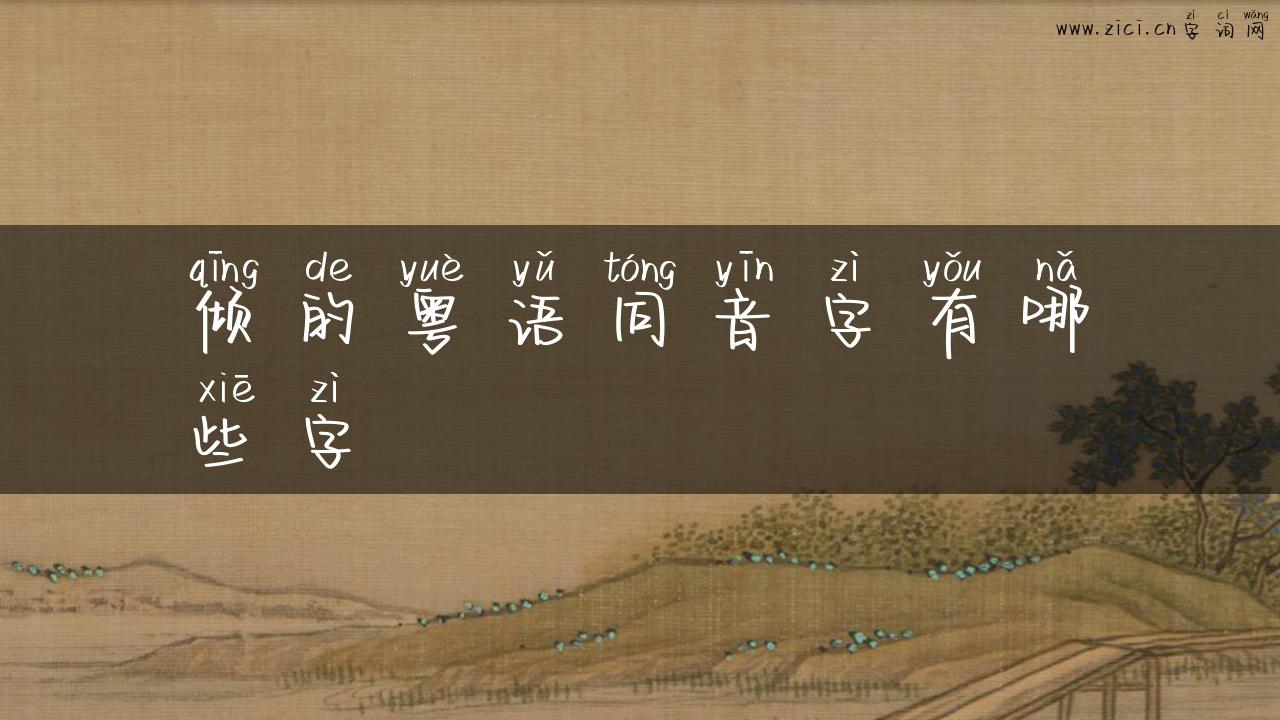 zì cí wǎng
www.zici.cn 字词网
qīng de yuè yǔ tóng yīn zì yǒu nǎ
倾的粤语同音字有哪
xiē zì
些字